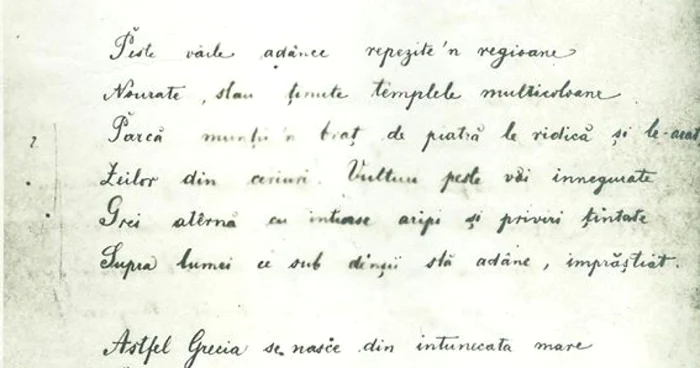 Peste văile adânce repezite'n regioane
Nourate, stau ținute templele multicoloane
? Parcă munții'n braț de piatră le ridică și le-arat
Zeilor din ceriuri. Vulturi peste văi innegurate
Grei atârnă cu intinse aripi și priviri țintate
Supra lumei ce sub dânșii stă adânc, imprăștiat.
Astfel Grecia se naște din intunecata mare